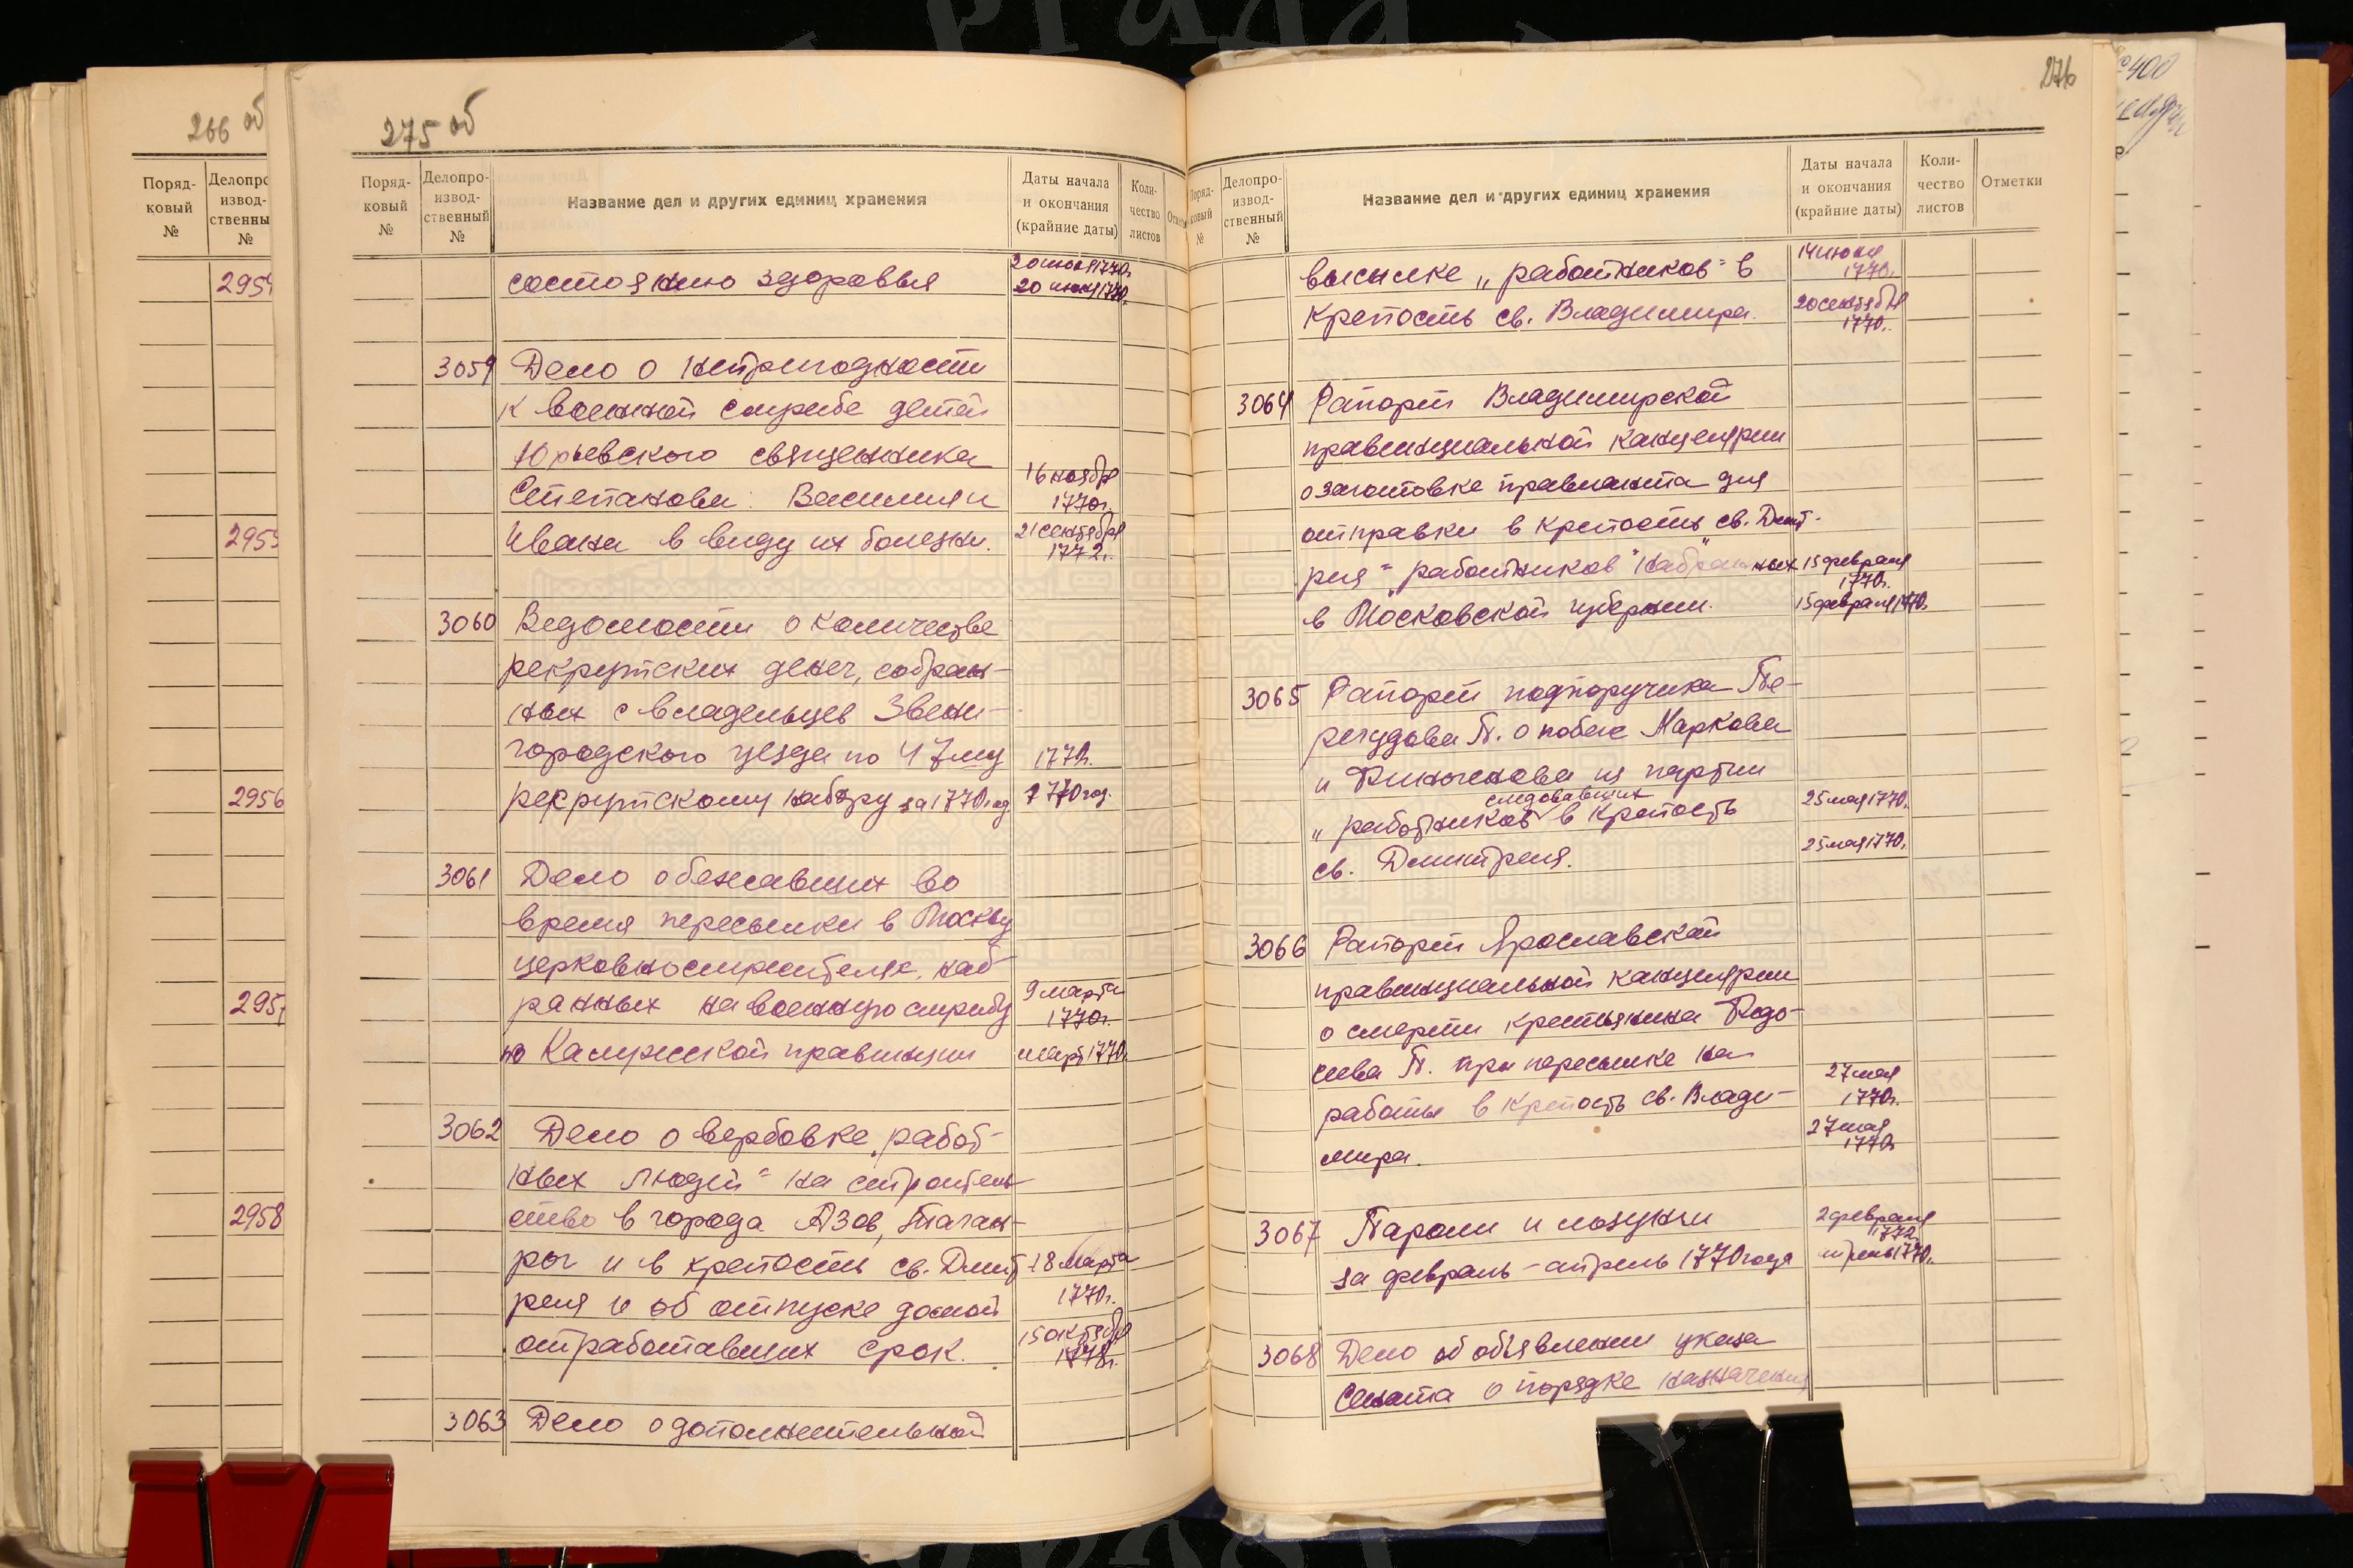 266 об
Поряд-
ковый
№
Делопро
извод-
ственны
№
2955
2956
2958
275 об
Поряд-
ковый
№
Делопро-
извод-
ственный
№
Название дел и других единиц хранения
Даты начала
и окончания
(крайние даты)
Коли-
чество
листов
состоянию здоровья
20 июля 1770г.
20 июля 1770г.
3059
Дело о непригодности
к военной службе детей
Юрьевского священника
Степанова: Василия и
Ивана в виду их болезни.
16 ноября
1770г.
21 сентября
1772г.
3060
Ведомости о количестве
рекрутских денег, собран-
ных с владельцев Звени-
городского уезда по 47му
рекрутскому набору за 1770 год
1770г.
1770 год.
3061
Дело о бежавших во
время пересылки в Москву
церковнослужителях, наб-
ранных на военную службу
по Калужской провинции
9 марта
1770г.
март 1770г.
3062
Дело о вербовке „работ-
ных людей" на строитель-
ство в города Азов, Таган-
рог и в крепость св. Дмит-
рия и об отпуске домой
отработавших срок.
18 марта
1770г.
15 октября
3063
Дело о дополнительной
276
Поряд-
ковый
№
Делопро-
извод-
ственный
№
Название дел и других единиц хранения
Даты начала
и окончания
(крайние даты)
Коли-
чество
листов
Отметки
высылке „работников" в
крепость св. Владимира.
14 июня
1770г.
20 сентября
1770г.
3064
Рапорт Владимирской
правинциальной канцелярии
о заготовке правианта для
отправки в крепость св. Дмит-
рия „работников" набранных
в Московской губернии.
15 февраля
1770г.
15 февраля 1770г.
3065
Рапорт подпоручика Пе-
регудова П. о побеге Маркова
и Филиченова из партии
„работников" следовавших в крепость
св. Дмитрия.
25 мая 1770г.
25 мая 1770г.
3066
Рапорт Ярославской
правинциальной канцелярии
о смерти крестьянина Федо-
сеева П. при пересылке на
работы в крепость св. Влади-
мира.
27 мая
1770г.
27 мая
1770г.
3067
Пароли и лозунги
за февраль – апрель 1770 года
2 февраля
апрель 1770г.
3068
Дело об объявлении указа
Сената о порядке назначения
№ 400